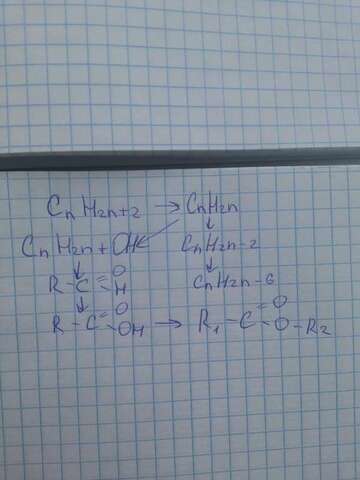 CnH2n+2 → CnH2n
↓
CnH2n+OH CnH2n-2
↓ ↓
R-C=O H CnH2n-6
↓
R-C=O OH → R1-C=O O-R2